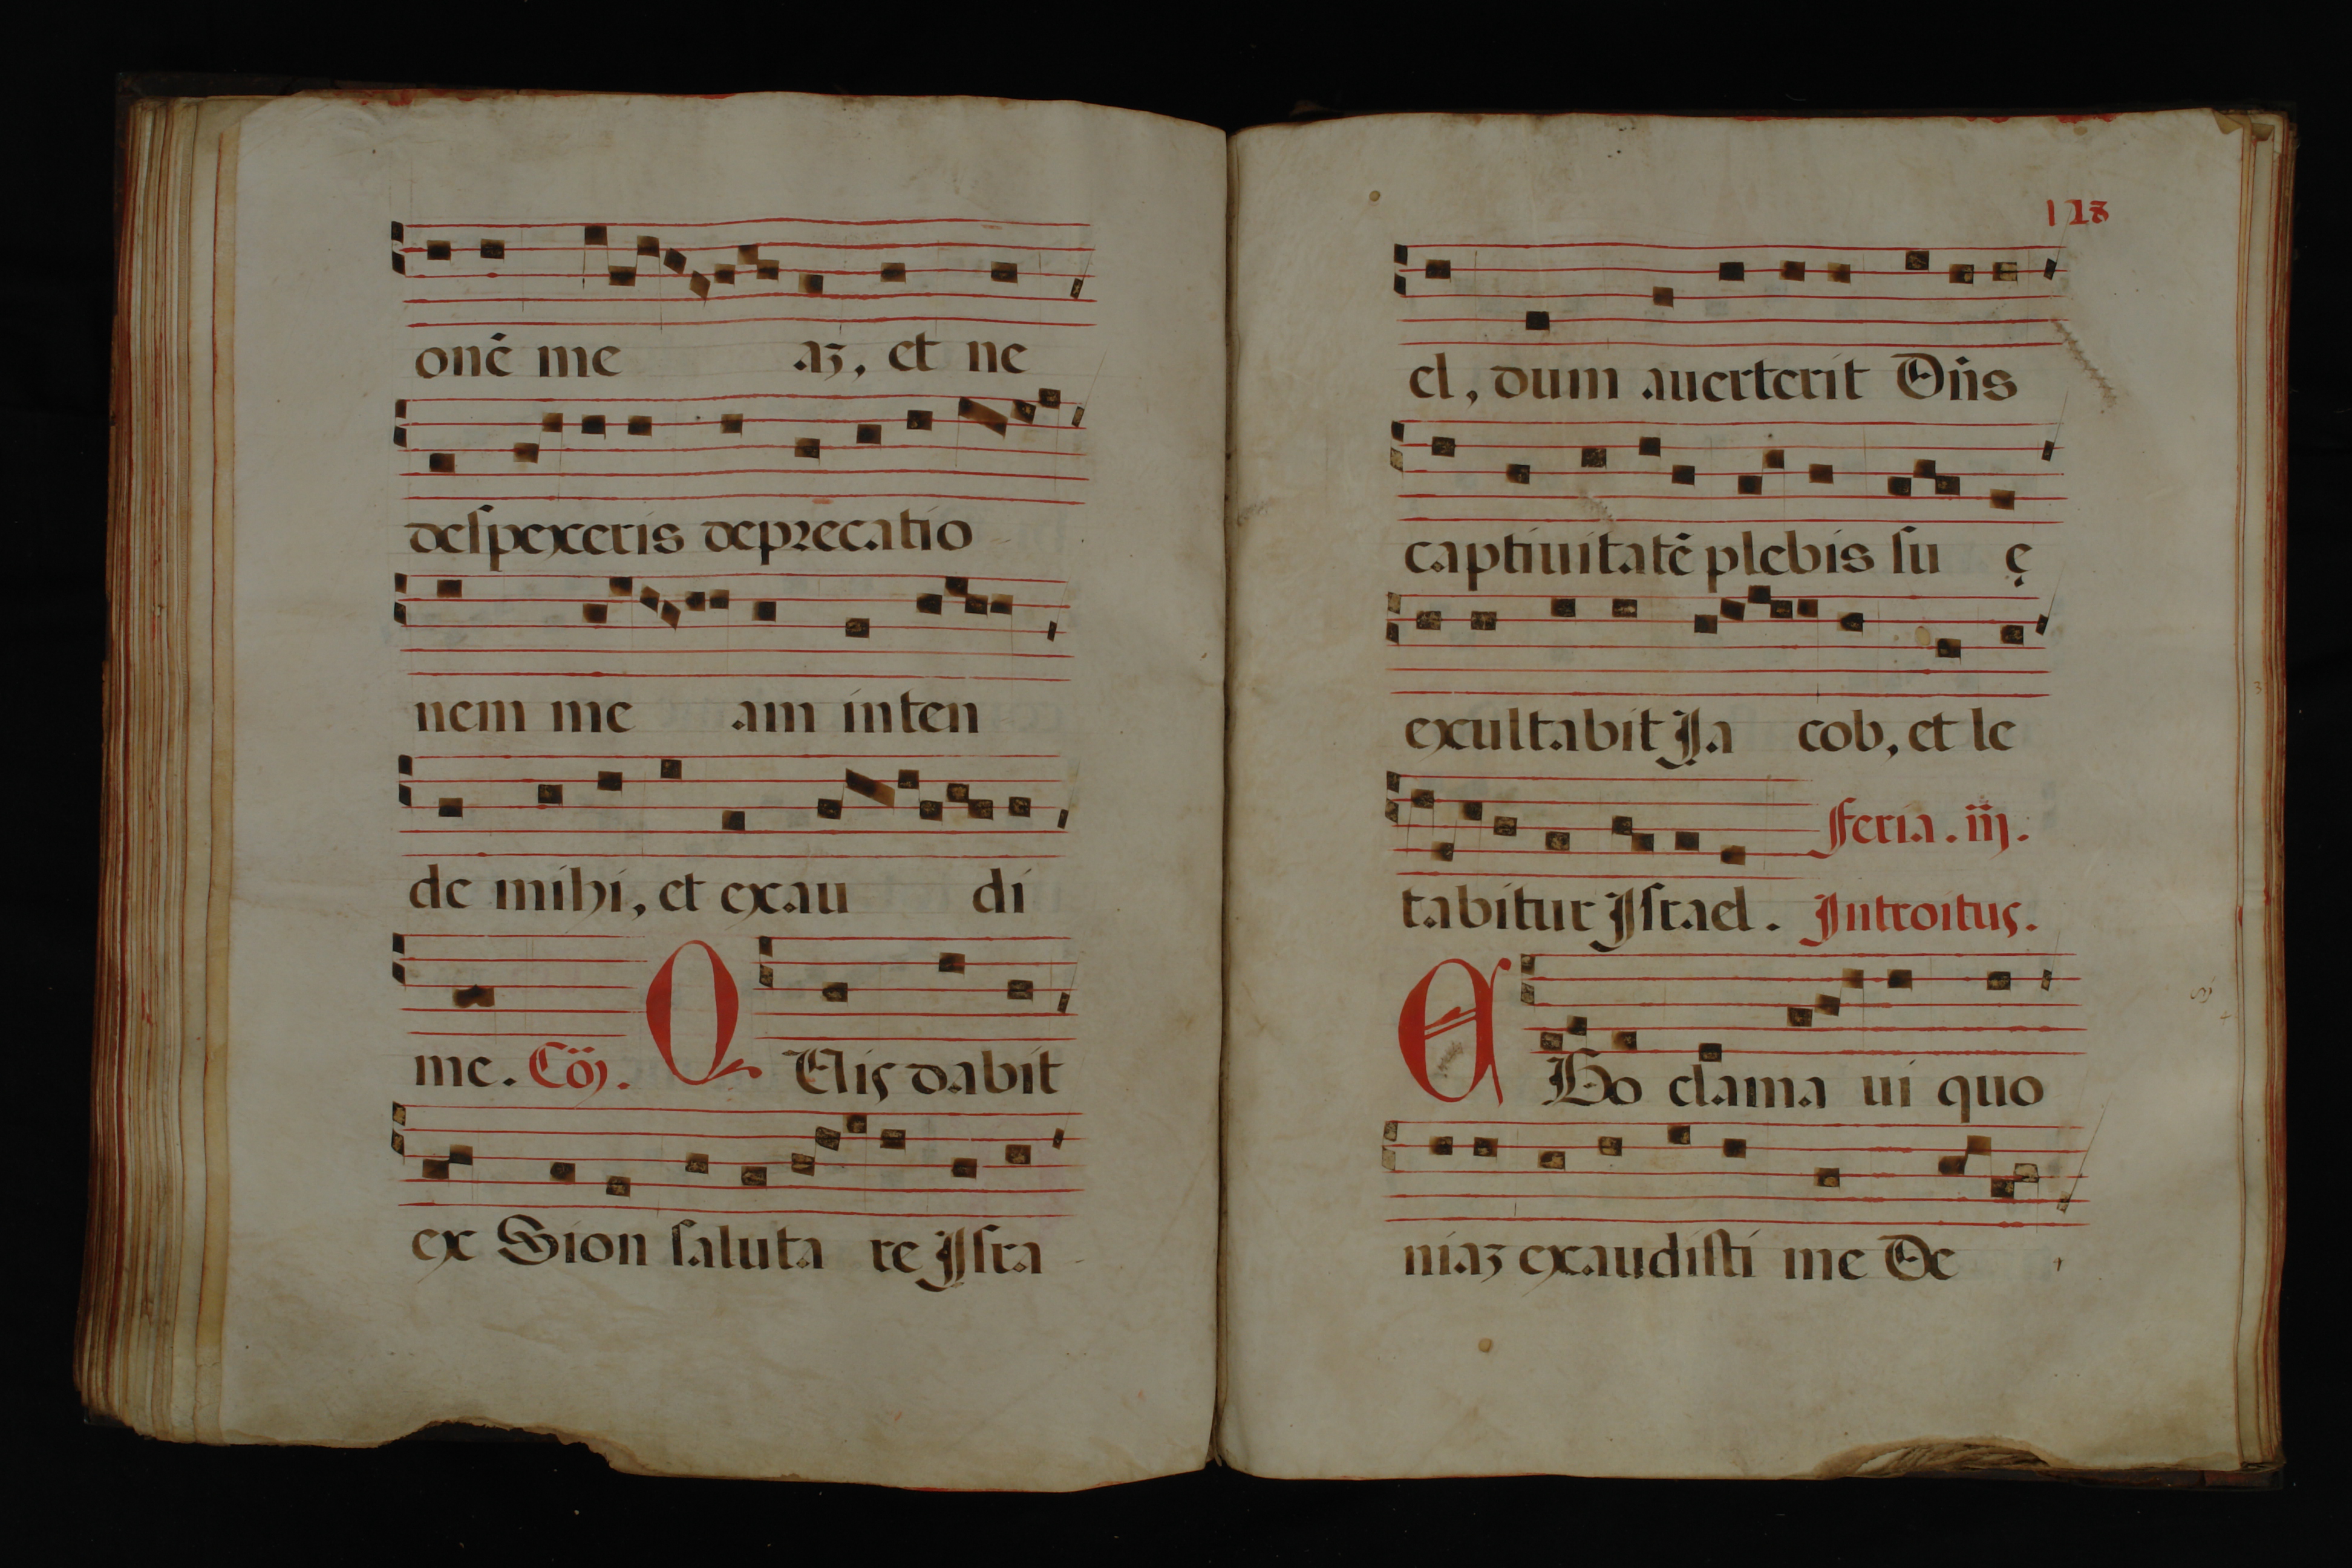 onē me aꝫ, et ne
deſpexeris deprecatio
nem me am inten
de mihi, et exau di
me. Cōj. Q Uis dabit
ex Sion ſaluta re Iſra
118
el, dum auerterit Dn̄s
captiuitatē plebis ſu ę
exultabit Ja cob, et le
tabitur Iſrael. Feria. iij. Introitus.
E Go clama ui quo
niaꝫ exaudiſti me De